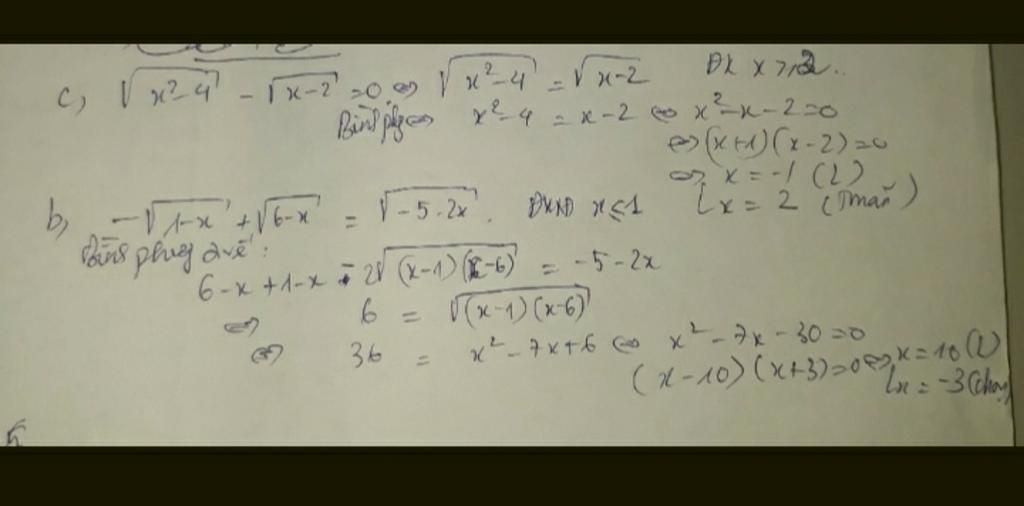 c, √(x²-4) - √(x-2) = 0 ⇔ √(x²-4) = √(x-2) ĐK x ≥ 2.
⇔ x²-4 = x-2 ⇔ x²-x-2=0
⇔ (x+1)(x-2)=0
⇔ [x = -1 (L)
[x = 2 (Tmãn)
b, -√(1-x) + √(6-x) = √(-5-2x). ĐKXĐ x ≤ 1
Bình phương 2 vế:
6-x+1-x - 2√((x-1)(x-6)) = -5-2x
⇔ 6 = √((x-1)(x-6))
⇔ 36 = x²-7x+6 ⇔ x²-7x-30=0
(x-10)(x+3)=0 ⇔ [x=10 (L)
[x = -3 (chọn)